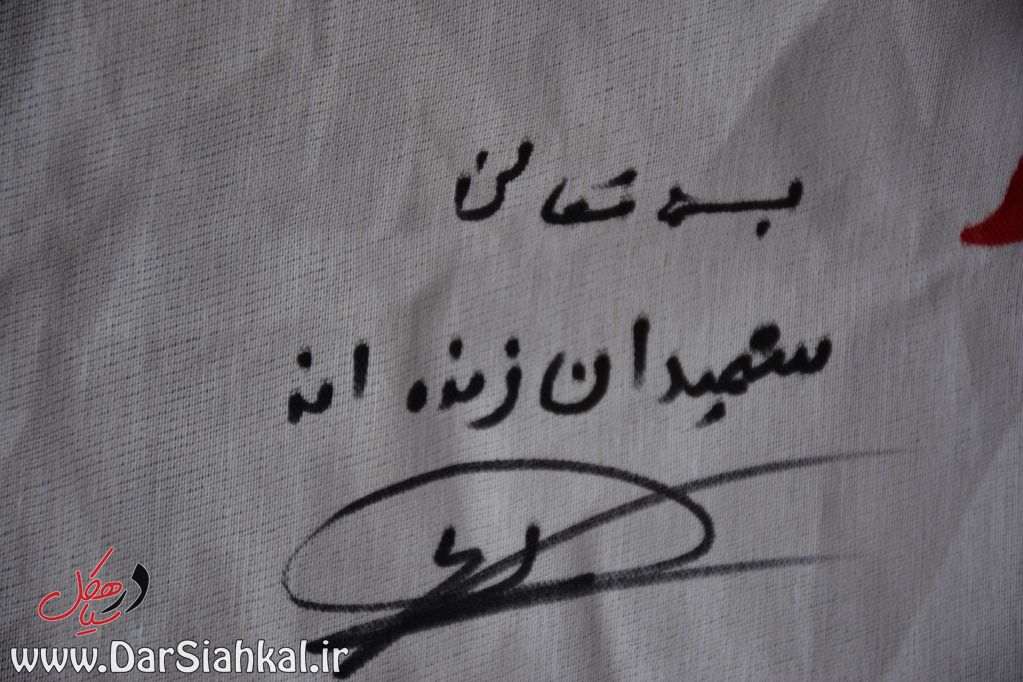 بسمه تعالی
شهیدان زنده اند
در سیاهکل
www.DarSiahkal.ir